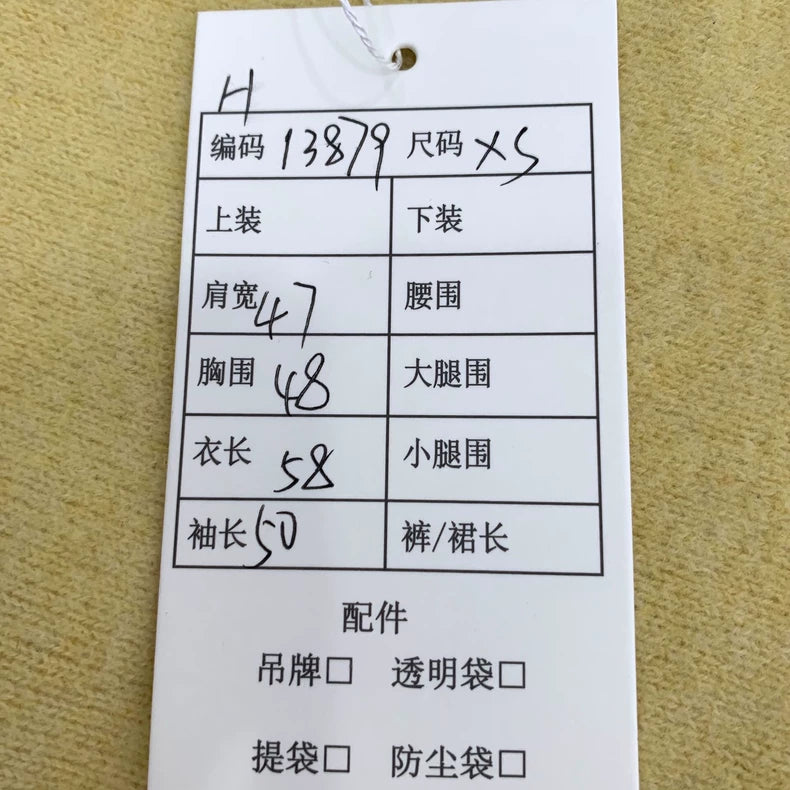 H
编码 13879 尺码 XS
上装 下装
肩宽 47 腰围
胸围 48 大腿围
衣长 58 小腿围
袖长 50 裤/裙长
配件
吊牌□ 透明袋□
提袋□ 防尘袋□